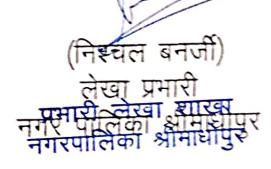 (निश्चल बनर्जी)
लेखा प्रभारी
प्रभारी लेखा शाखा
नगर पालिका श्रीमाधोपुर
नगरपालिका श्रीमाधोपुर